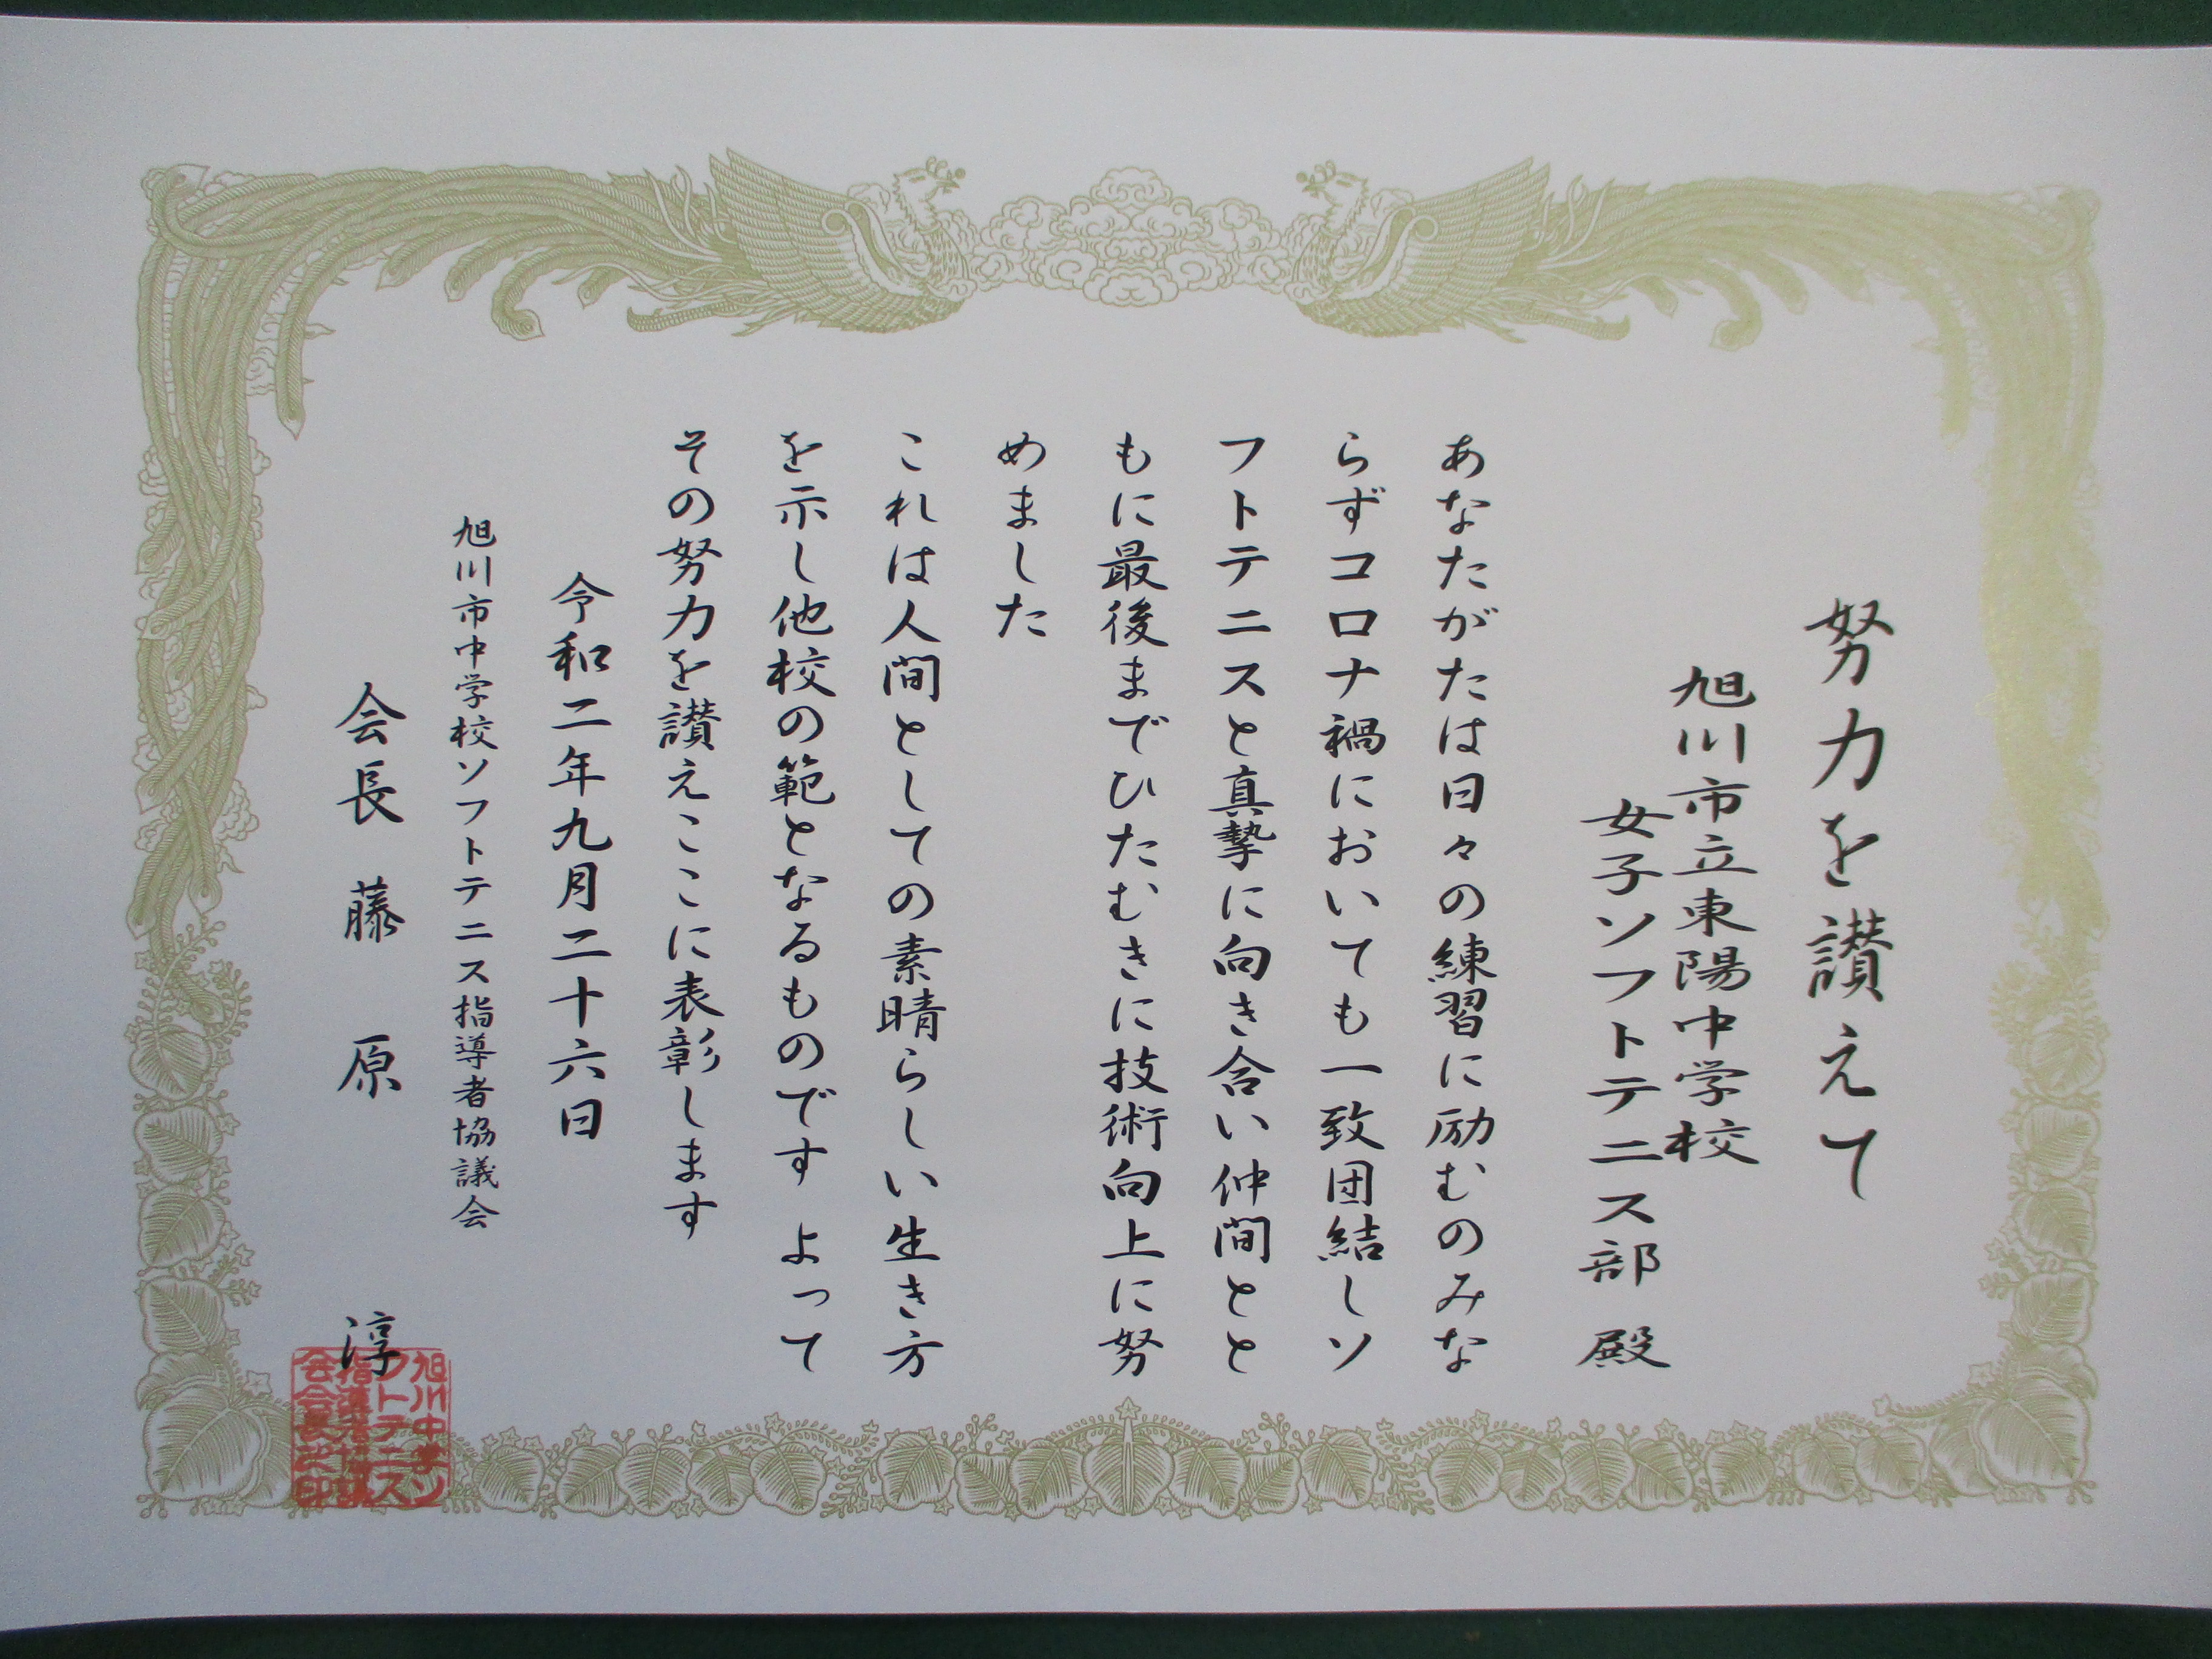 努力を讃えて
旭川市立東陽中学校
女子ソフトテニス部 殿
あなたがたは日々の練習に励むのみな
らずコロナ禍においても一致団結しソ
フトテニスと真摯に向き合い仲間とと
もに最後までひたむきに技術向上に努
めました
これは人間としての素晴らしい生き方
を示し他校の範となるものです よって
その努力を讃えここに表彰します
令和二年九月二十六日
旭川市中学校ソフトテニス指導者協議会
会長 藤原 淳
旭川中学ソ
フトテニス
指導者協議
会会長之印